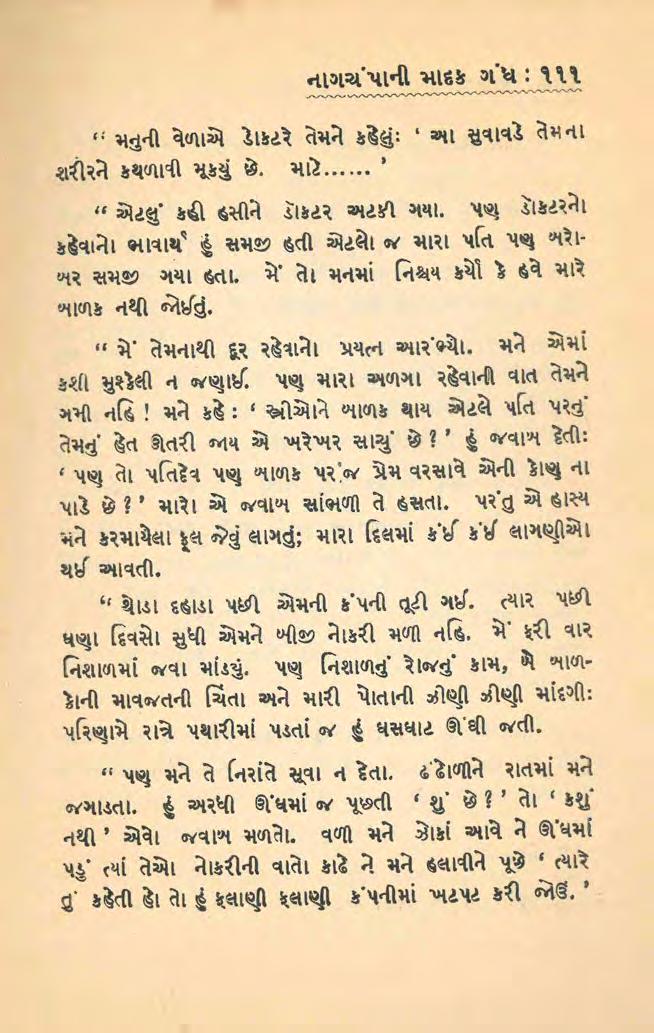 નાગચંપાની માદક ગંધ : ૧૧૧
“ મનુની વેળાએ ડૉકટરે તેમને કહેલું: ‘ આ સુવાવડે તેમના
શરીરને કથળાવી મૂકયું છે. માટે...... ’
“ એટલું કહી હસીને ડૉકટર અટકી ગયા. પણ ડૉકટરનો
કહેવાનો ભાવાર્થ હું સમજી હતી એટલો જ મારા પતિ પણ બરો-
બર સમજી ગયા હતા. મેં તો મનમાં નિશ્ચય કર્યો કે હવે મારે
બાળક નથી જોઈતું.
“ મેં તેમનાથી દૂર રહેવાનો પ્રયત્ન આરંભ્યો. મને એમાં
કશી મુશ્કેલી ન જણાઈ. પણ મારા અળગા રહેવાની વાત તેમને
ગમી નહિ ! મને કહે : ‘ સ્ત્રીઓને બાળક થાય એટલે પતિ પરનું
તેમનું હેત ઊતરી જાય એ ખરેખર સાચું છે ? ’ હું જવાબ દેતી:
‘ પણ તો પતિદેવ પણ બાળક પર જ પ્રેમ વરસાવે એની કોણ ના
પાડે છે ? ’ મારો એ જવાબ સાંભળી તે હસતા. પરંતુ એ હાસ્ય
મને કરમાયેલા ફૂલ જેવું લાગતું; મારા દિલમાં કંઈ કંઈ લાગણીઓ
થઈ આવતી.
“ થોડા દહાડા પછી એમની કંપની તૂટી ગઈ. ત્યાર પછી
ઘણા દિવસો સુધી એમને બીજી નોકરી મળી નહિ. મેં ફરી વાર
નિશાળમાં જવા માંડયું. પણ નિશાળનું રોજનું કામ, બે બાળ-
કોની માવજતની ચિંતા અને મારી પોતાની ઝીણી ઝીણી માંદગી:
પરિણામે રાત્રે પથારીમાં પડતાં જ હું ઘસઘાટ ઊંઘી જતી.
“ પણ મને તે નિરાંતે સૂવા ન દેતા. ઢંઢોળીને રાતમાં મને
જગાડતા. હું અરધી ઊંઘમાં જ પૂછતી ‘ શું છે ? ’ તો ‘ કશું
નથી ’ એવો જવાબ મળતો. વળી મને ઝોકાં આવે ને ઊંઘમાં
પડું ત્યાં તેઓ નોકરીની વાતો કાઢે ને મને હલાવીને પૂછે ‘ ત્યારે
તું કહેતી હો તો હું ફલાણી ફલાણી કંપનીમાં ખટપટ કરી જોઉં. ’